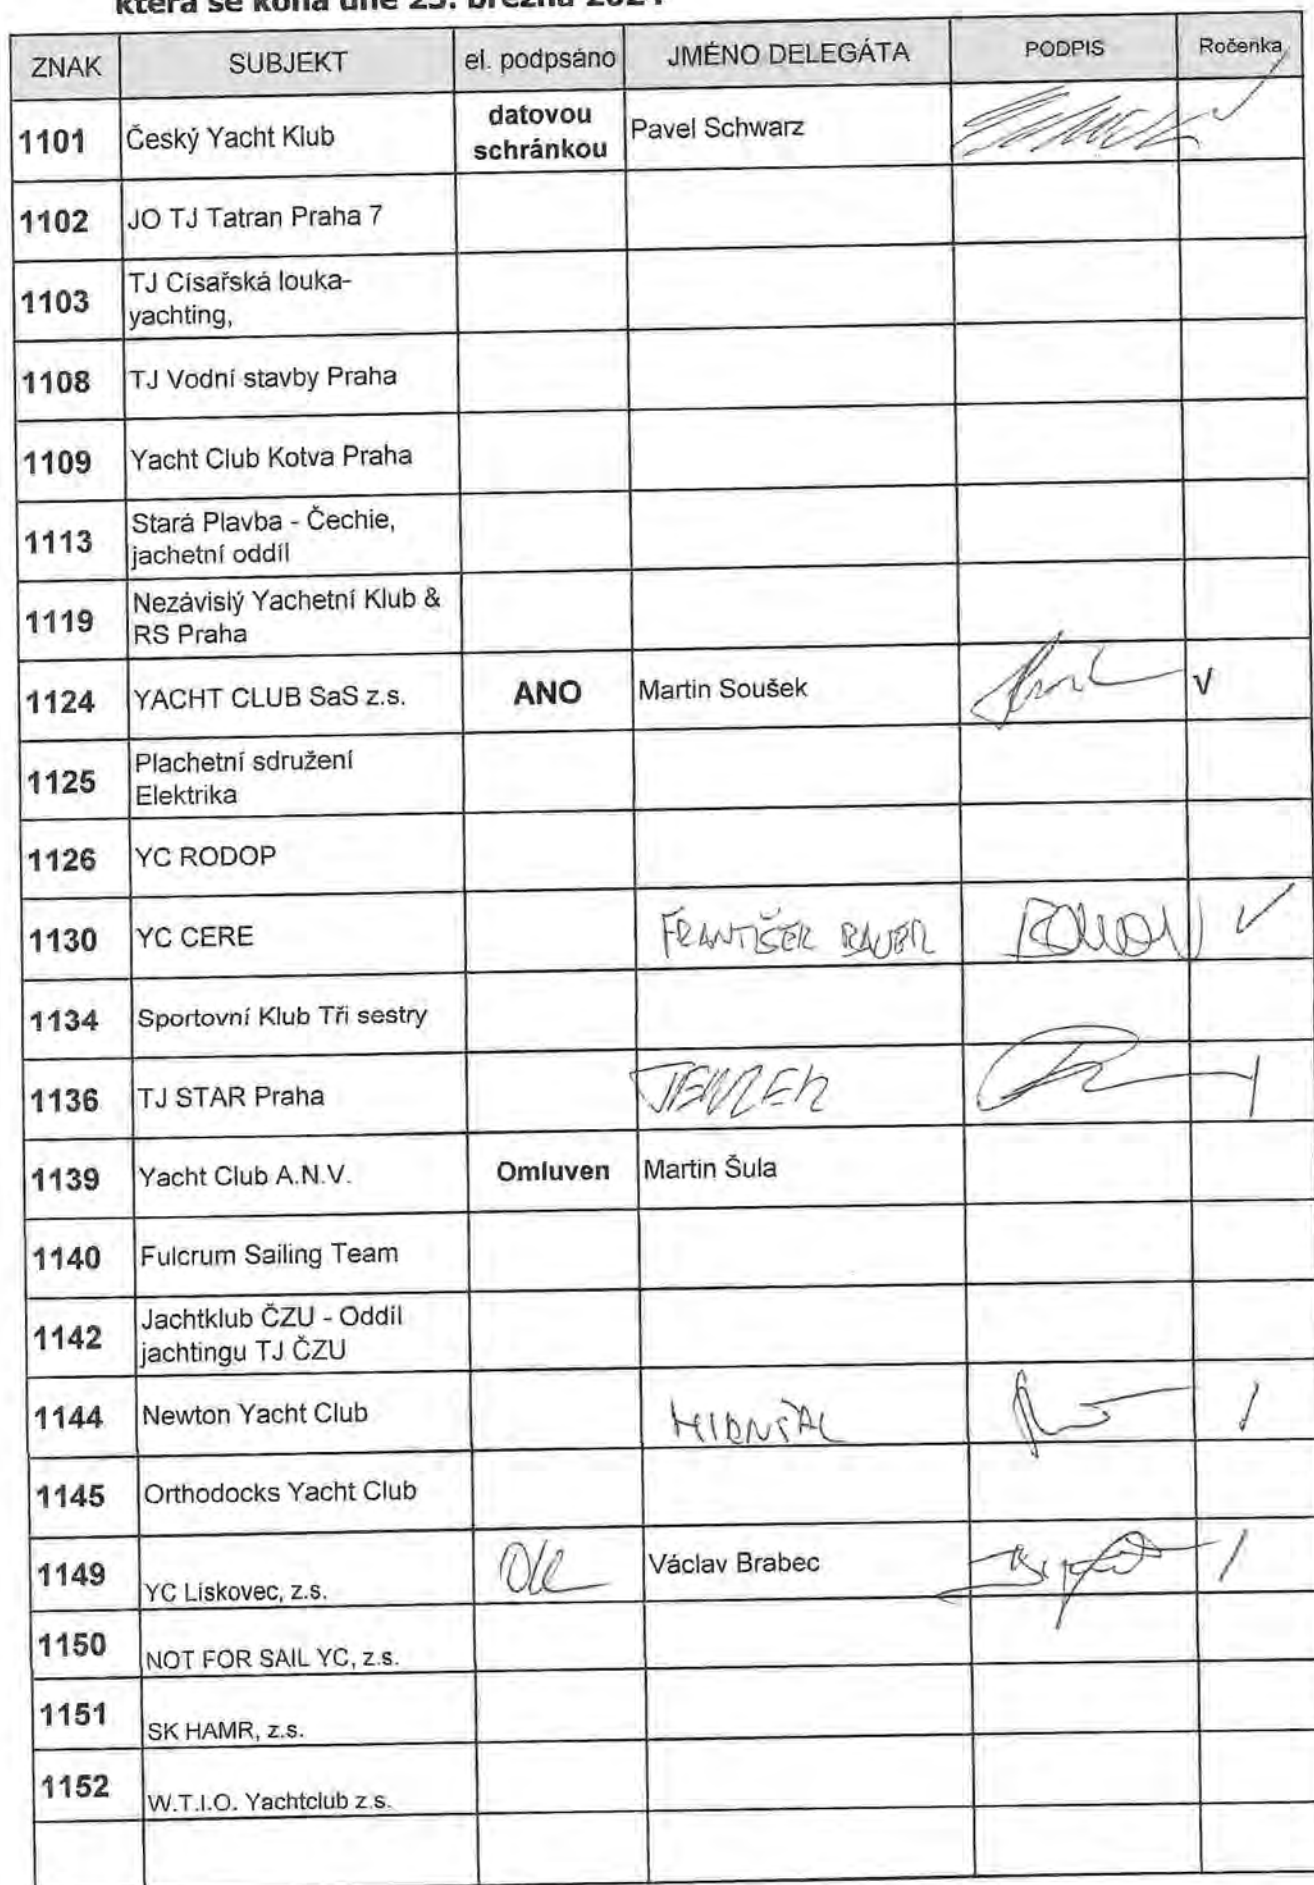 která se koná dne 23. března 2024
ZNAK SUBJEKT el. podpsáno JMÉNO DELEGÁTA PODPIS Ročenka
1101 Český Yacht Klub datovou schránkou Pavel Schwarz
1102 JO TJ Tatran Praha 7
1103 TJ Císařská louka-
yachting,
1108 TJ Vodní stavby Praha
1109 Yacht Club Kotva Praha
1113 Stará Plavba - Čechie,
jachetní oddíl
1119 Nezávislý Yachetní Klub &
RS Praha
1124 YACHT CLUB SaS z.s. ANO Martin Soušek
1125 Plachetní sdružení
Elektrika
1126 YC RODOP
1130 YC CERE FRANTIŠEK BAUER
1134 Sportovní Klub Tři sestry
1136 TJ STAR Praha
1139 Yacht Club A.N.V. Omluven Martin Šula
1140 Fulcrum Sailing Team
1142 Jachtklub ČZU - Oddíl
jachtingu TJ ČZU
1144 Newton Yacht Club
1145 Orthodocks Yacht Club
1149 YC Lískovec, z.s. OK Václav Brabec
1150 NOT FOR SAIL YC, z.s.
1151 SK HAMR, z.s.
1152 W.T.I.O. Yachtclub z.s.